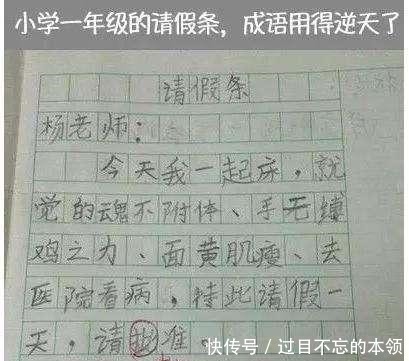 小学一年级的请假条，成语用得逆天了
请假条
杨老师：
今天我一起床，就
觉的魂不附体、手无缚
鸡之力、面黄肌瘦、去
医院看病，特此请假一
天，请批准。
快传号/过目不忘的本领